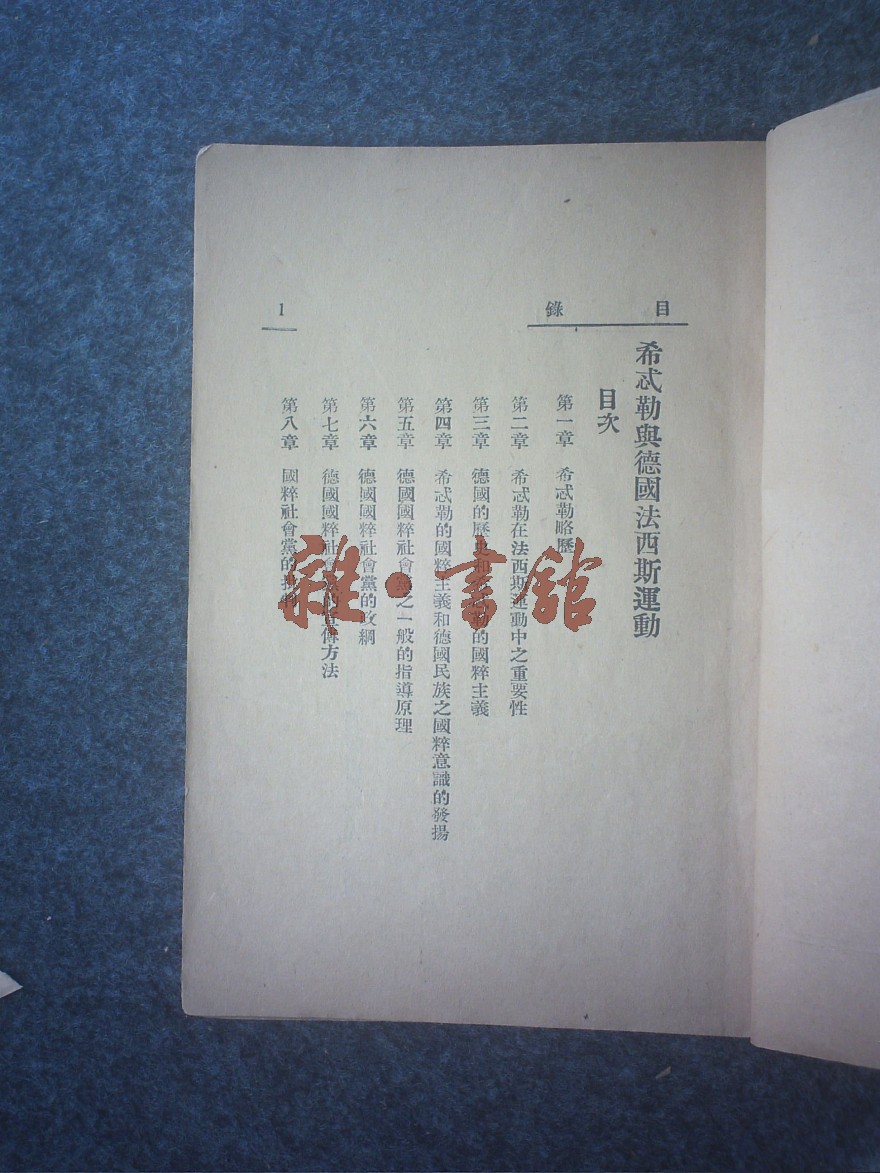 目錄
希忒勒與德國法西斯運動
目次
第一章 希忒勒略歷
第二章 希忒勒在法西斯運動中之重要性
第三章 德國的歷史和希忒勒的國粹主義
第四章 希忒勒的國粹主義和德國民族之國粹意識的發揚
第五章 德國國粹社會黨之一般的指導原理
第六章 德國國粹社會黨的政綱
第七章 德國國粹社會黨的宣傳方法
第八章 國粹社會黨的批判
1
雜·書館